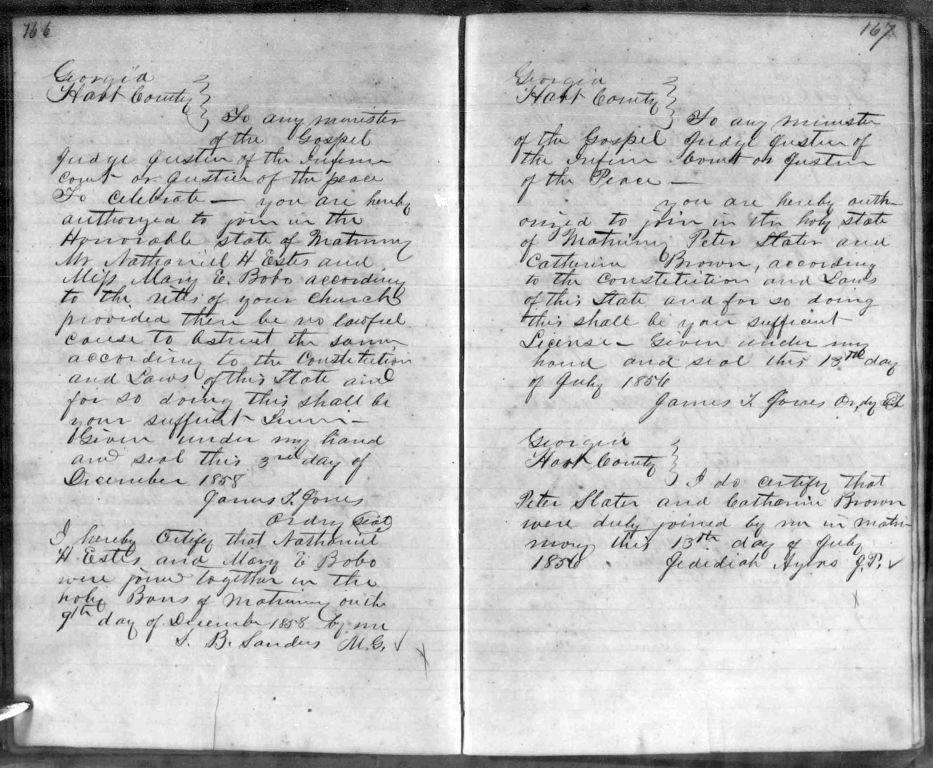 166
Georgia
Hart County
To any minister
of the Gospel
Judge Justice of the Inferior
court or Justice of the peace
To celebrate — you are hereby
authorized to join in the
Honorable state of Matrimony
Mr Nathaniel H Estes and
Miss Mary E. Bobo according
to the rites of your Church
provided there be no lawful
cause to obstruct the same
according to the Constitution
and Laws of this State and
for so doing this shall be
your sufficient
Given under my hand
and seal this 3rd day of
December 1858
James T. Jones
Ordry Seal
I hereby Certify that Nathaniel
H Estes and Mary E Bobo
were joined together in the
holy Bans of Matrimony on the
9th day of December 1858 by me
B. Sanders M.G.
167
Georgia
Hart County
To any minister
of the Gospel Judge Justice of
the Inferior Court or Justice
of the Peace —
you are hereby auth-
orized to join in the holy state
of Matrimony Peter Slater and
Catharine Brown, according
to the Constitution and Laws
of this State and for so doing
this shall be your sufficient
License — Given under my
hand and seal this 13th day
of July 1856
James T. Jones Ordy
Georgia
Hart County
I do certify that
Peter Slater and Catharine Brown
were duly joined by me in matri-
mony this 13th day of July
1856 Jedidiah Ayers J.P.